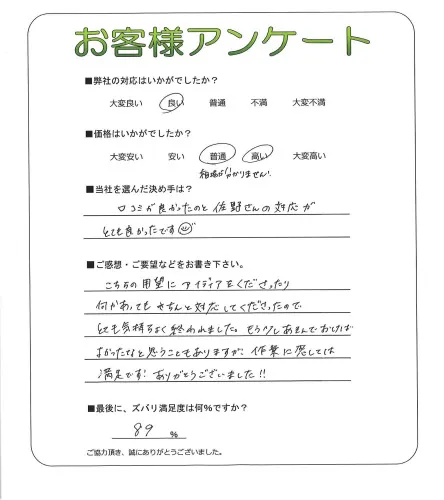 お客様アンケート
■弊社の対応はいかがでしたか?
大変良い 良い 普通 不満 大変不満
■価格はいかがでしたか?
大変安い 安い 普通 高い 大変高い
相場は分かりません。
■当社を選んだ決め手は?
口コミが良かったのと佐野さんの対応が
とても良かったです
■ご感想・ご要望などをお書き下さい。
こちらの用望にアイディアをくださったり
何かあってもきちんと対応してくださったので
とても気持ちよく終われました。もう少し あんで おけば
よかったなと思うこともありますが、作業に応しては
満足です! ありがとうございました!!
■最後に、ズバリ満足度は何%ですか?
89 %
ご協力頂き、誠にありがとうございました。